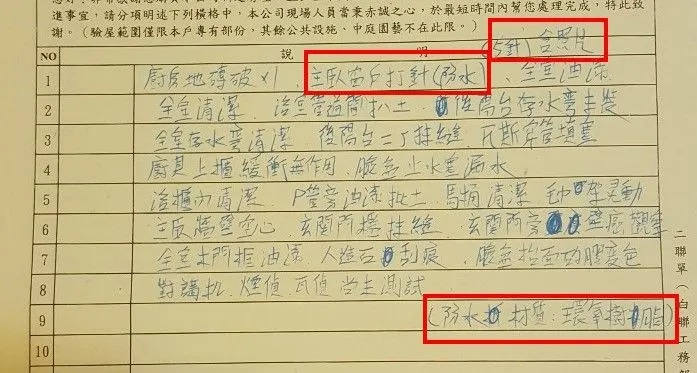 進事宜，請分項明述下列橫格中，本公司現場人員當秉赤誠之心，於最短時間內幫您處理完成，特此致
謝。(驗屋範圍僅限本戶專有部份，其餘公共設施、中庭園藝不在此限。)
(5針) 含照片
NO 說 明
1 廚房地磚破×1、主臥窗戶打針(防水)、全室油漆
2 全室清潔、浴室管道間批土、後陽台存水彎未裝
3 全室存水彎清潔 後陽台二丁掛縫、瓦斯穿管填塞
4 廚具上櫃緩衝無作用、臉盆止水塞漏水、
5 浴櫃內清潔、P管旁油漆批土、馬桶清潔
6 主臥牆壁空心 玄關門檻挂縫、玄關門旁
7 全室木門框油漆、人造石刮痕、臉盆檯面的膠變色
8 對講机、煙偵、瓦偵尚未測試
9 (防水 材質：環氧樹脂)
10
二聯單(白聯工務部